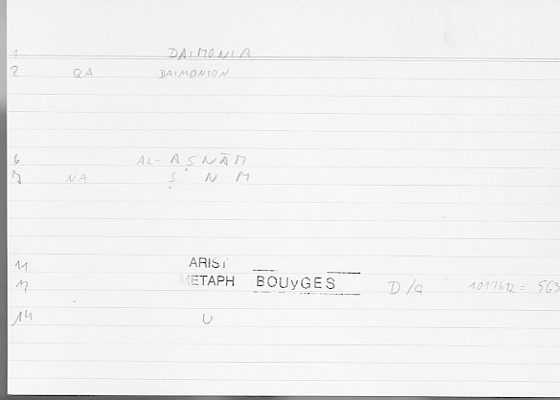 1 DAIMONIA
2 QA DAIMONION
6 AL- AṢNĀM
7 NA Ṣ N M
11 ARIST
12 METAPH BOUyGES D/G 1017b12 = 563
14 U